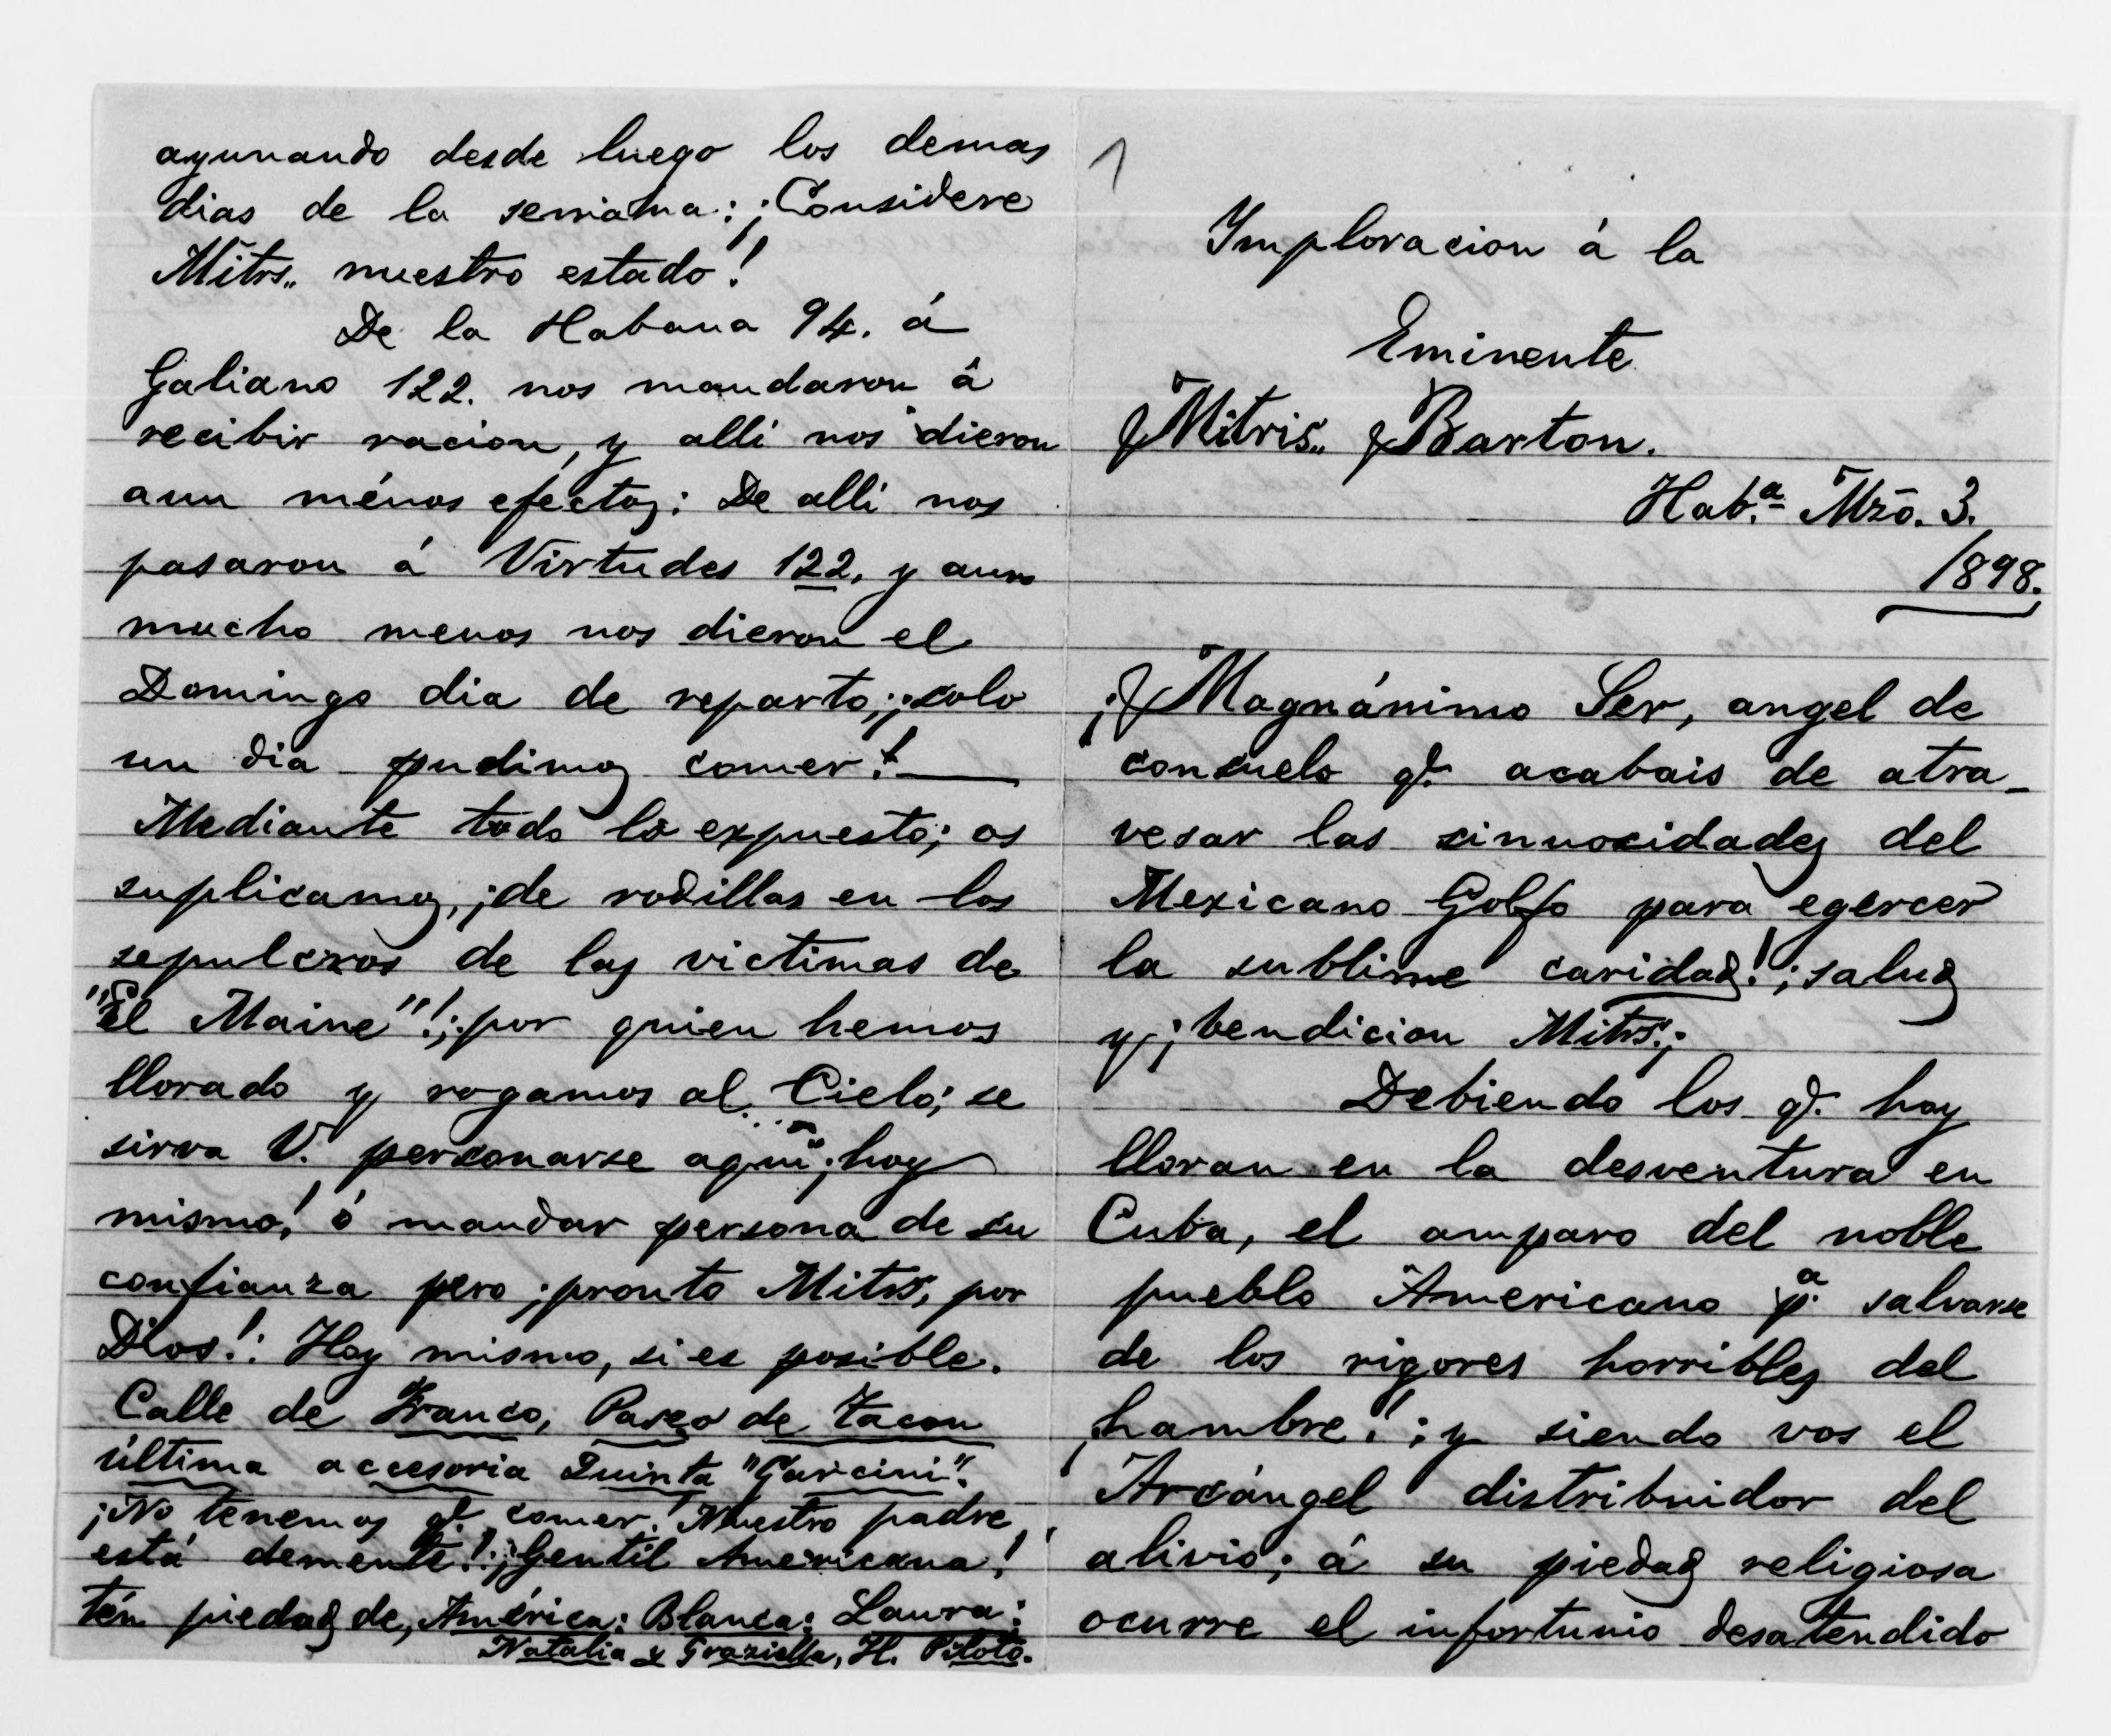 ayunando desde luego los demas
dias de la semana: ¡Considere
Mitrs,, nuestro estado!
De la Habana 94. á
Galiano 122. nos mandaron á
recibir racion, y alli nos dieron
aun ménos efectos: De alli nos
pasaron á Virtudes 122, y aun
mucho menos nos dieron el
Domingo dia de reparto; ¡solo
un dia pudimos comer!
Mediante todo lo expuesto; os
suplicamos, ¡de rodillas en los
sepulcros de las victimas de
"El Maine"! ¡por quien hemos
llorado y rogamos al Cielo; se
sirva V. personarse aqui ¡hoy
mismo! ó mandar persona de su
confianza pero ¡pronto Mitrs, por
Dios!: Hoy mismo, si es posible.
Calle de Franco, Paseo de Tacon
última accesoria Quinta "Garcini".
¡No tenemos qe. comer! Nuestro padre
está demente!: ¡Gentil Americana!
tén piedad de, América: Blanca: Laura:
Natalia y Graziella, H. Pilotó.
1
Imploracion á la
Eminente
Mitris,, Barton.
Hab.a Mzo. 3.
1898.
¡Magnánimo Ser, angel de
consuelo qe. acabais de atra-
vesar las sinuosidades del
Mexicano Golfo para egercer
la sublime caridad! ¡salud
y ¡bendicion Mitrs.;
Debiendo los qe. hoy
lloran en la desventura en
Cuba, el amparo del noble
pueblo Americano p.a salvarse
de los rigores horribles del
¡hambre!; y siendo vos el
Arcángel distribuidor del
alivio; á su piedad religiosa
ocurre el infortunio desatendido